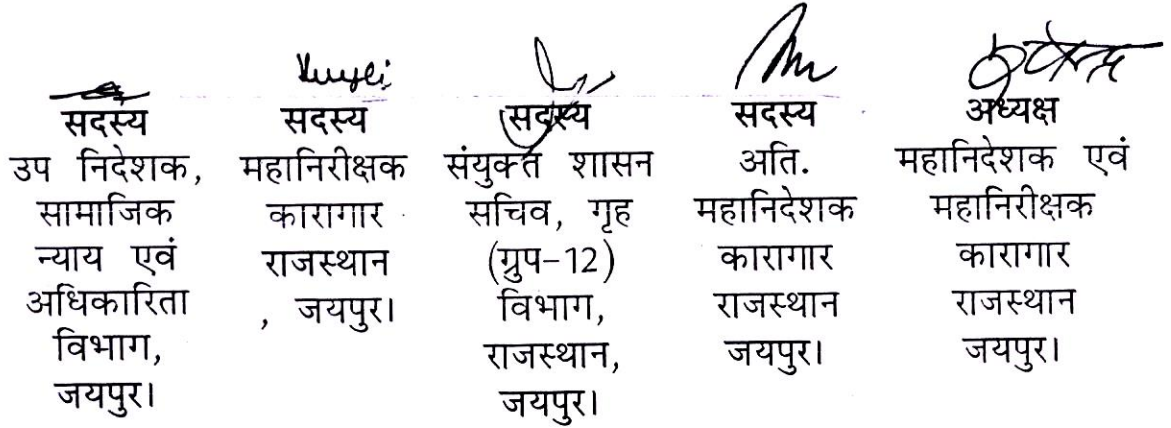 सदस्य
उप निदेशक,
सामाजिक
न्याय एवं
अधिकारिता
विभाग,
जयपुर।
सदस्य
महानिरीक्षक
कारागार
राजस्थान
, जयपुर।
सदस्य
संयुक्त शासन
सचिव, गृह
(ग्रुप-12)
विभाग,
राजस्थान,
जयपुर।
सदस्य
अति.
महानिदेशक
कारागार
राजस्थान
जयपुर।
अध्यक्ष
महानिदेशक एवं
महानिरीक्षक
कारागार
राजस्थान
जयपुर।